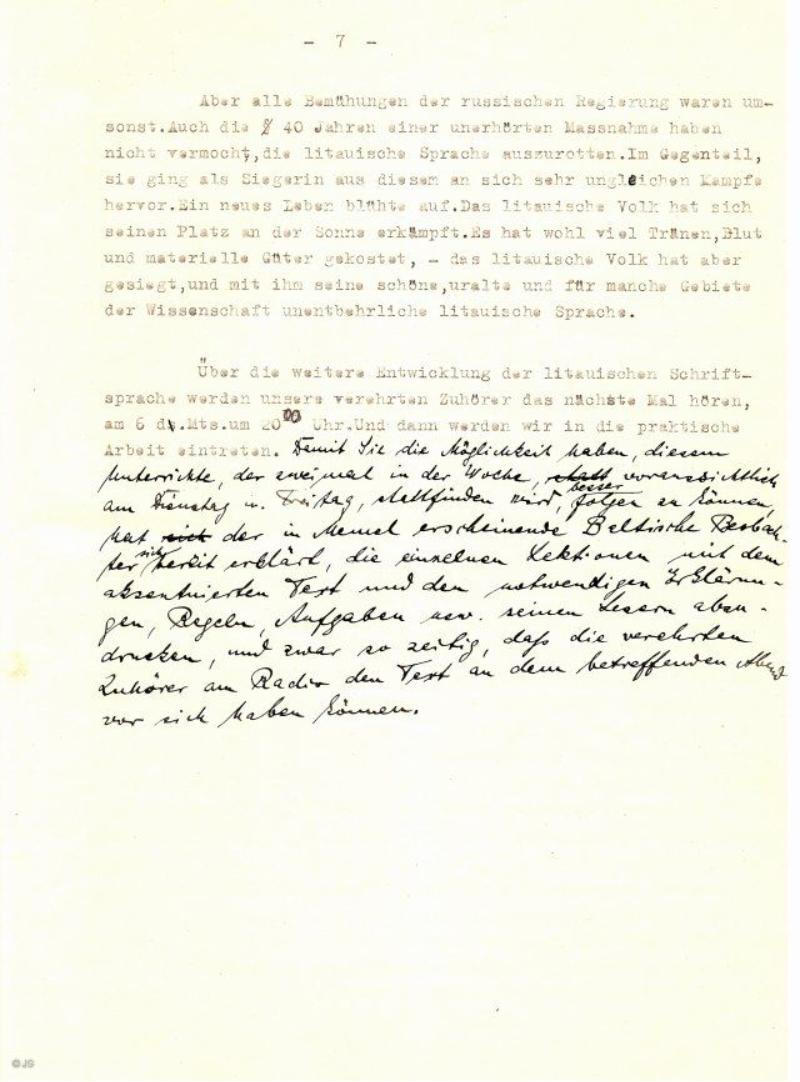 - 7 -
Aber alle Bemühungen der russischen Regierung waren um-
sonst.Auch die 40 Jahren einer unerhörten Massnahme haben
nicht vermocht,die litauische Sprache auszurotten.Im Gegenteil,
sie ging als Siegerin aus diesem an sich sehr ungleichen Kampfe
hervor.Ein neues Leben blühte auf.Das litauische Volk hat sich
seinen Platz an der Sonne erkämpft.Es hat wohl viel Tränen,Blut
und materielle Güter gekostet, - das litauische Volk hat aber
gesiegt,und mit ihm seine schöne,uralte und für manche Gebiete
der Wissenschaft unentbehrliche litauische Sprache.
Über die weitere Entwicklung der litauischen Schrift-
sprache werden unsere verehrten Zuhörer das nächste Mal hören,
am 6 d.Mts.um 20⁰⁰ Uhr.Und dann werden wir in die praktische
Arbeit eintreten. Damit Sie die Möglichkeit haben, diesem
Unterrichte, der zweimal in der Woche, statt voraussichtlich
am Dienstag u. Freitag, stattfinden wird, besser folgen zu können,
hat sich der in Memel erscheinende Baltische Beobach-
ter sich bereit erklärt, die einzelnen Lektionen mit dem
akzentuierten Text und den notwendigen Erklärun-
gen, Regeln, Aufgaben usw. seinen Lesern abzu-
drucken, und zwar so zeitig, daß die verehrten
Zuhörer am Radio den Text an dem betreffenden Abend
vor sich haben können.
©JS